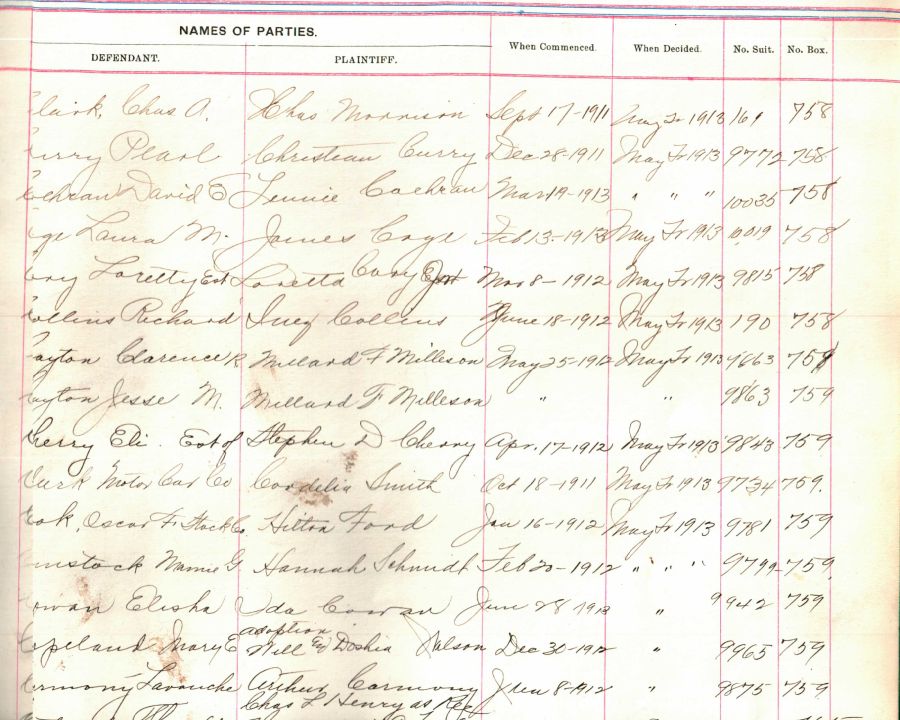 NAMES OF PARTIES.
DEFENDANT. PLAINTIFF. When Commenced. When Decided. No. Suit. No. Box.
lark, Chas A. Chas Morrison Sept 17-1911 May Tr 1913 161 758
urry Pearl Christean Curry Dec 28-1911 May Tr 1913 9772 758
ochran David E Jennie Cochran Mar 19-1913 " " " 10035 758
ge Laura M. James Cage Feb 13-1913 May Tr 1913 10,019 758
ory Loretty Est Loretta Cory Mar 8-1912 May Tr 1913 9815 758
ollins Richard Inez Collins June 18-1912 May Tr 1913 190 758
ayton Clarence R Millard F Milleson May 25-1912 May Tr 1913 758
ayton Jesse M. Millard F Milleson " " 9863 759
herry Eli. Est of Stephen D Cherry Apr. 17-1912 May Tr 1913 9843 759
lark Motor Car Co Cordelia Smith Oct 18-1911 May Tr 1913 9734 759.
ook, Oscar F Stock Co Hilton Ford Jan 16-1912 May Tr 1913 9781 759
mstock Mamie G Hannah Schmidt Feb 20-1912 " " " 9799 759
owan Elisha Ida Cowan June 28-1912 " 9942 759
adoption
opeland Mary E Will Doshia Dec 30-1912 " 9965 759
armony Lavouche Arthur Carmony June 8-1912 " 9875 759
Chas L Henry as Rec